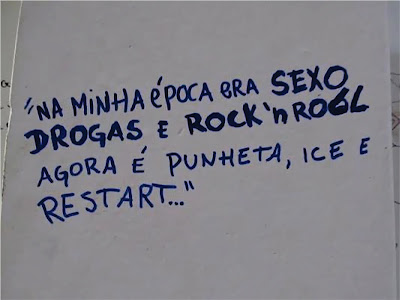 "NA MINHA ÉPOCA ERA SEXO
DROGAS E ROCK'nROLL
AGORA É PUNHETA, ICE E
RESTART..."